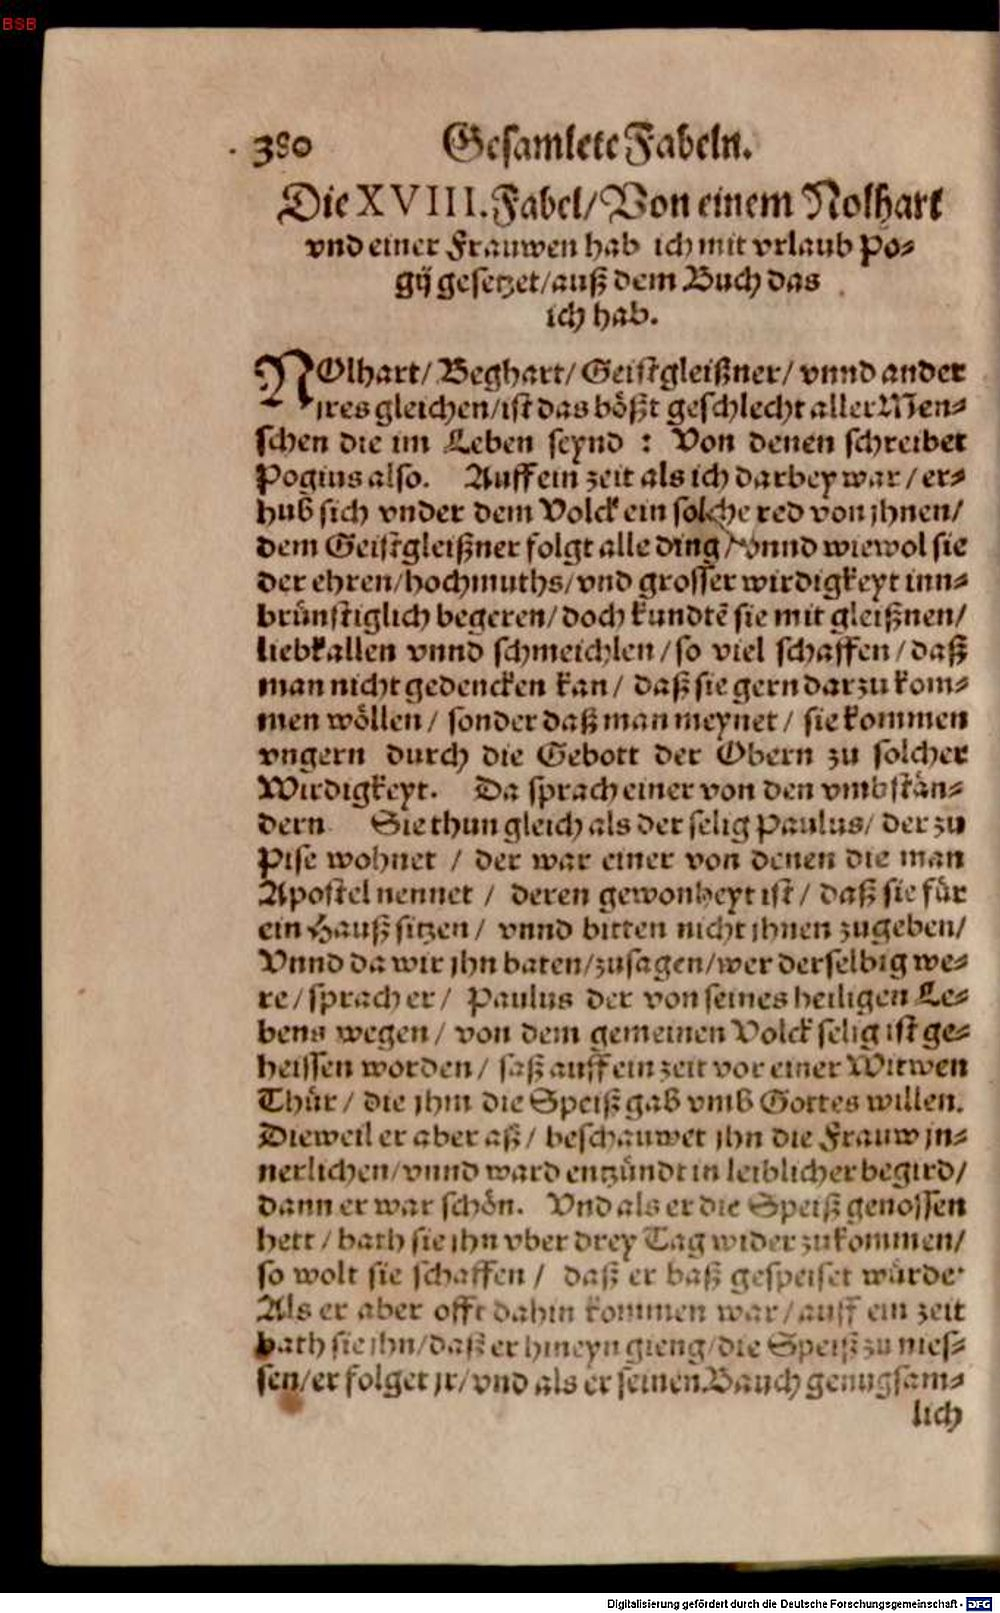 BSB
380 Gesamlete Fabeln.
Die XVIII. Fabel/ Von einem Nolhart
vnd einer Frauwen hab ich mit vrlaub Po⸗
gij gesetzet/auß dem Buch das
ich hab.
NOlhart/ Beghart/ Geistgleißner/ vnnd ander
jres gleichen/ist das bößt geschlecht aller Men⸗
schen die im Leben seynd : Von denen schreibet
Pogius also. Auff ein zeit als ich darbey war/ er⸗
hub sich vnder dem Volck ein solche red von jhnen/
dem Geistgleißner folgt alle ding/ vnnd wiewol sie
der ehren/hochmuths/vnd grosser wirdigkeyt inn⸗
brünstiglich begeren/doch kundtẽ sie mit gleißnen/
liebkallen vnnd schmeichlen/so viel schaffen/daß
man nicht gedencken kan/ daß sie gern darzu kom⸗
men wöllen/ sonder daß man meynet/ sie kommen
vngern durch die Gebott der Obern zu solcher
Wirdigkeyt. Da sprach einer von den vmbstän⸗
dern Sie thun gleich als der selig Paulus/ der zu
Pise wohnet / der war einer von denen die man
Apostel nennet / deren gewonheyt ist/ daß sie für
ein Hauß sitzen/ vnnd bitten nicht jhnen zugeben/
Vnnd da wir jhn baten/zusagen/wer derselbig we⸗
re/sprach er/ Paulus der von seines heiligen Le⸗
bens wegen/ von dem gemeinen Volck selig ist ge⸗
heissen worden/ saß auff ein zeit vor einer Witwen
Thür/ die jhm die Speiß gab vmb Gottes willen.
Dieweil er aber aß/ beschauwet jhn die Frauw jn⸗
nerlichen/vnnd ward entzündt in leiblicher begird/
dann er war schön. Vnd als er die Speiß genossen
hett/bath sie jhn vber drey Tag wider zukommen/
so wolt sie schaffen/ daß er baß gespeiset würde
Als er aber offt dahin kommen war/auff ein zeit
bath sie jhn/daß er hineyn gieng/die Speiß zu nies⸗
sen/er folget jr/vnd als er seinen Bauch genugsam⸗
lich
Digitalisierung gefördert durch die Deutsche Forschungsgemeinschaft - DFG